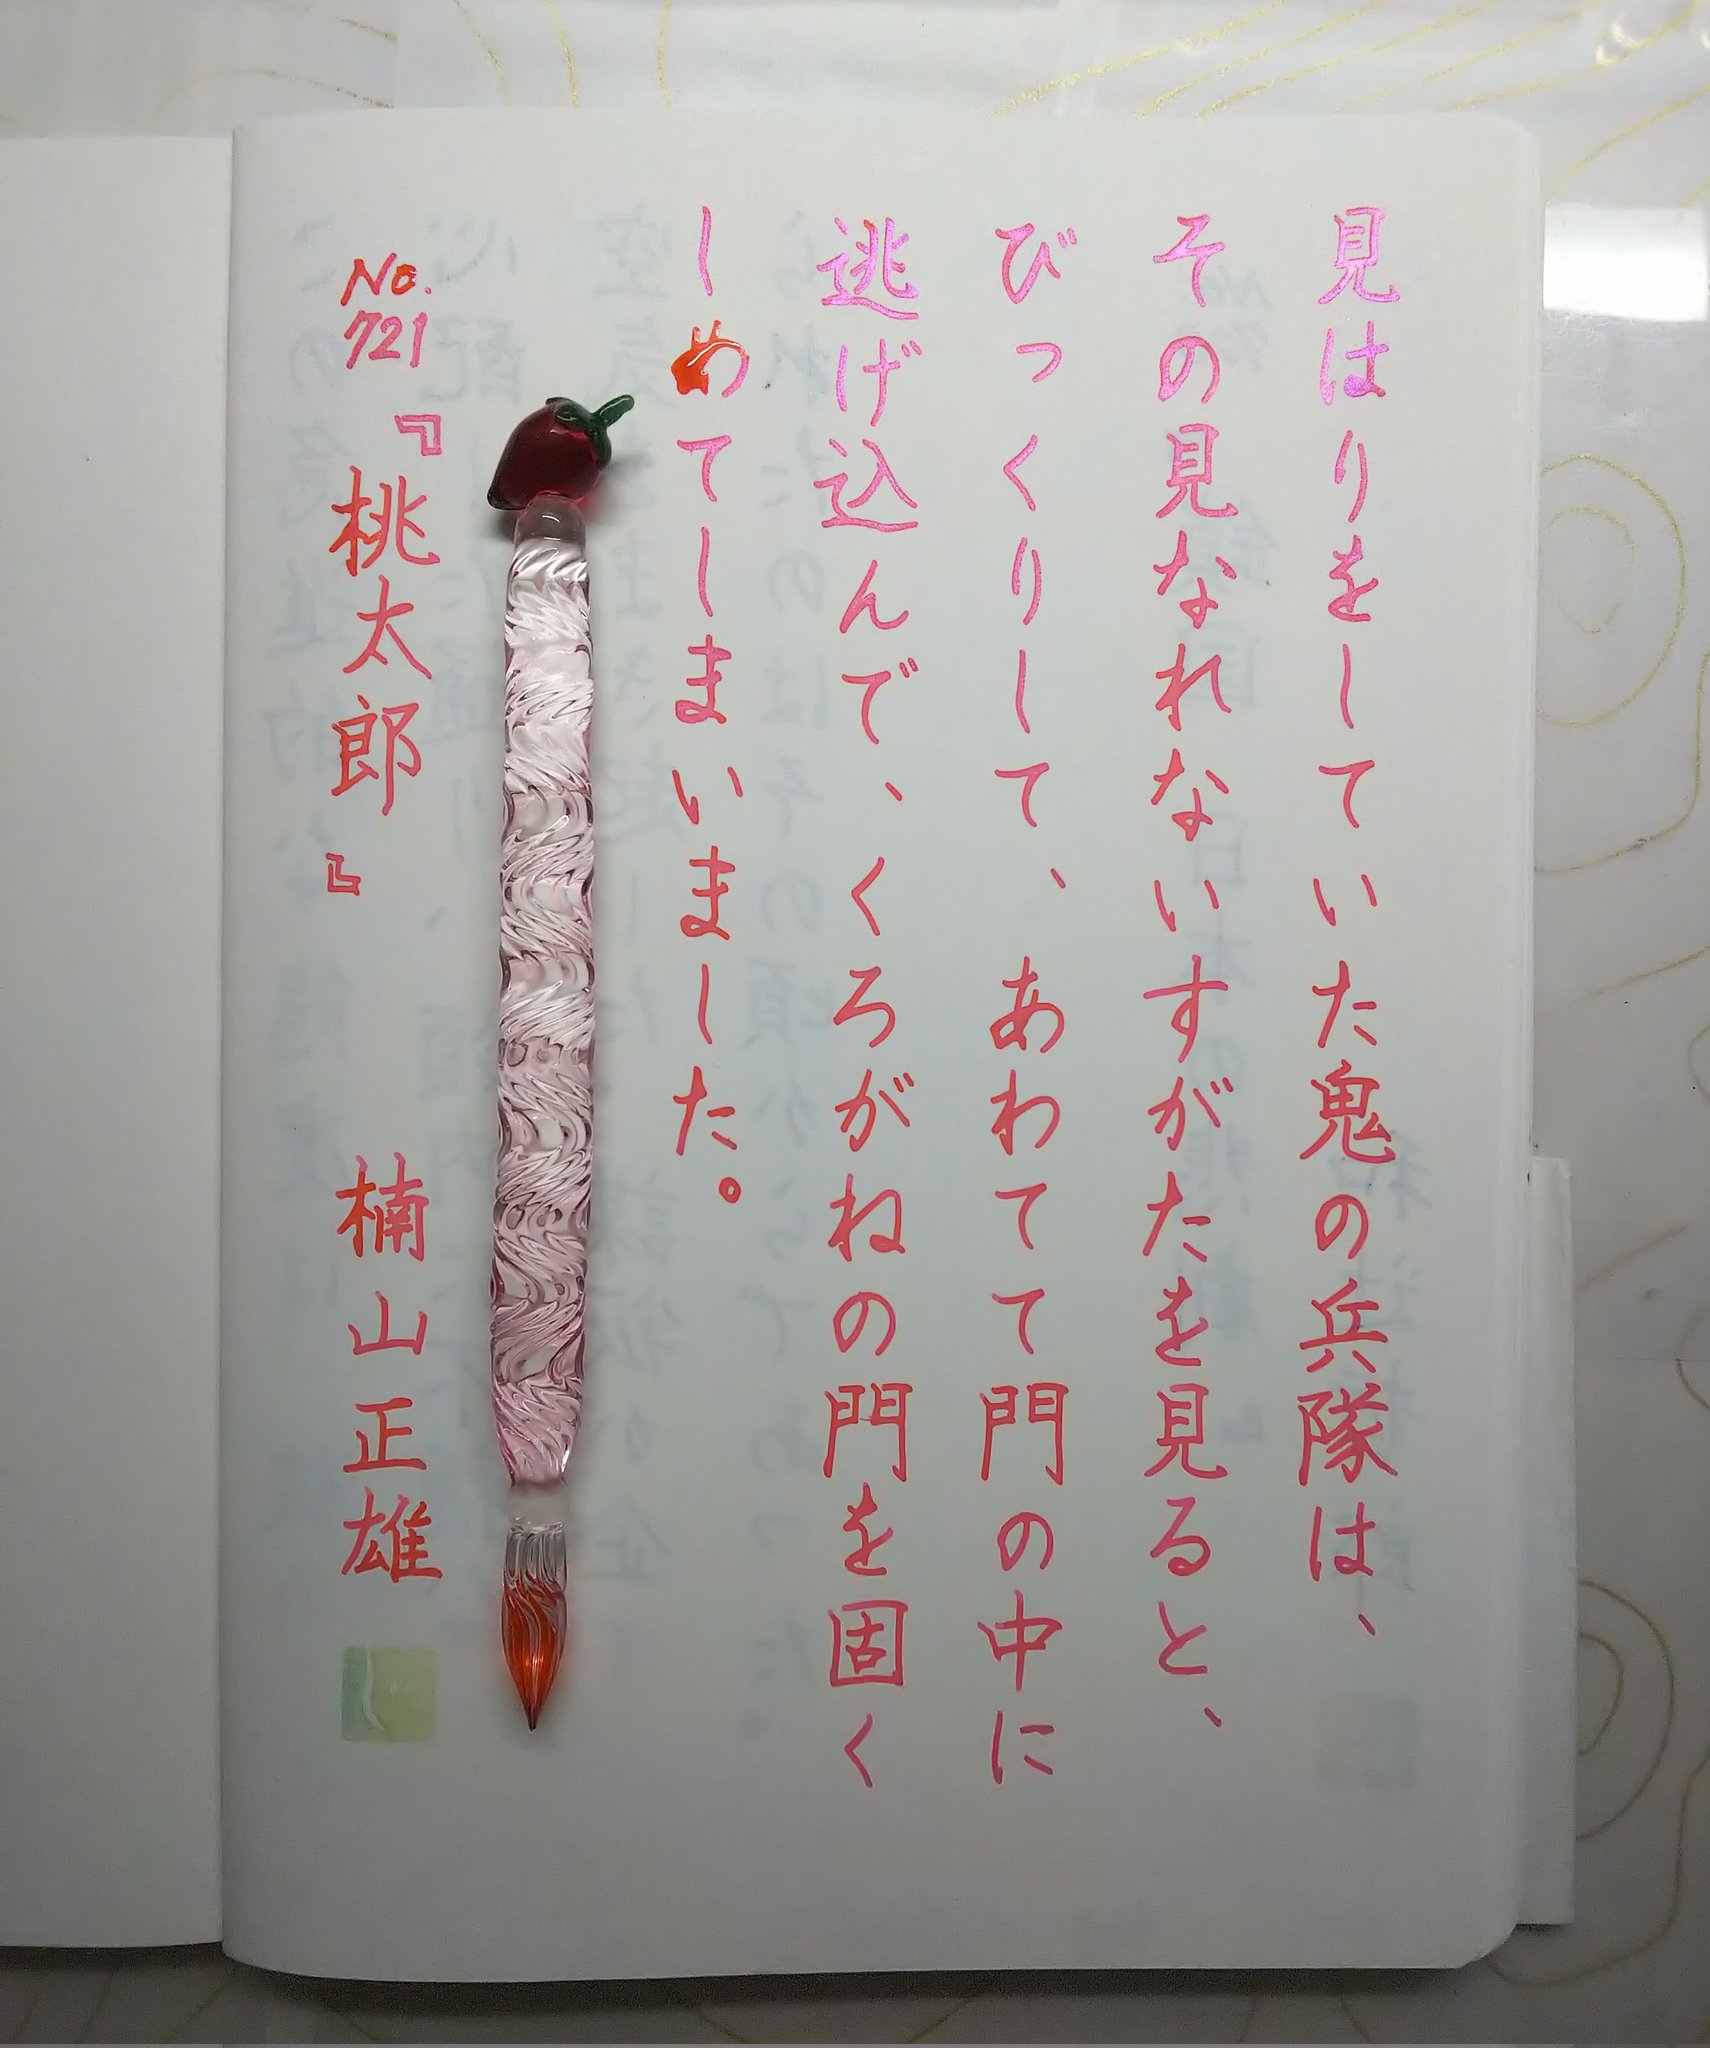 見はりをしていた鬼の兵隊は、
その見なれないすがたを見ると、
びっくりして、あわてて門の中に
逃げ込んで、くろがねの門を固く
しめてしまいました。
No.
721
『桃太郎』 楠山正雄